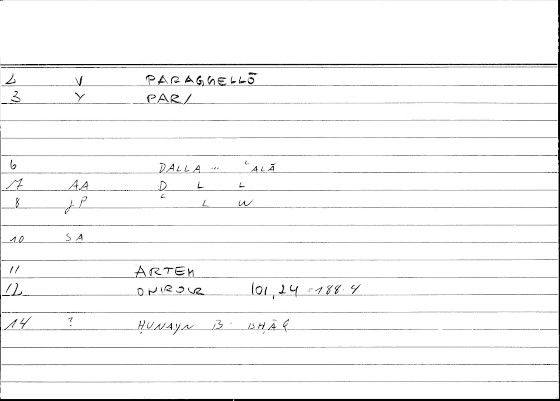 2 V PARAGGELLŌ
3 Y PAR/
6 DALLA ... ʿALĀ
7 AA D L L
8 JP ʿ L W
10 SA
11 ARTEM
12 ONIROCR 101,24 - 188.4
14 ? ḤUNAYN B. ISḤĀQ